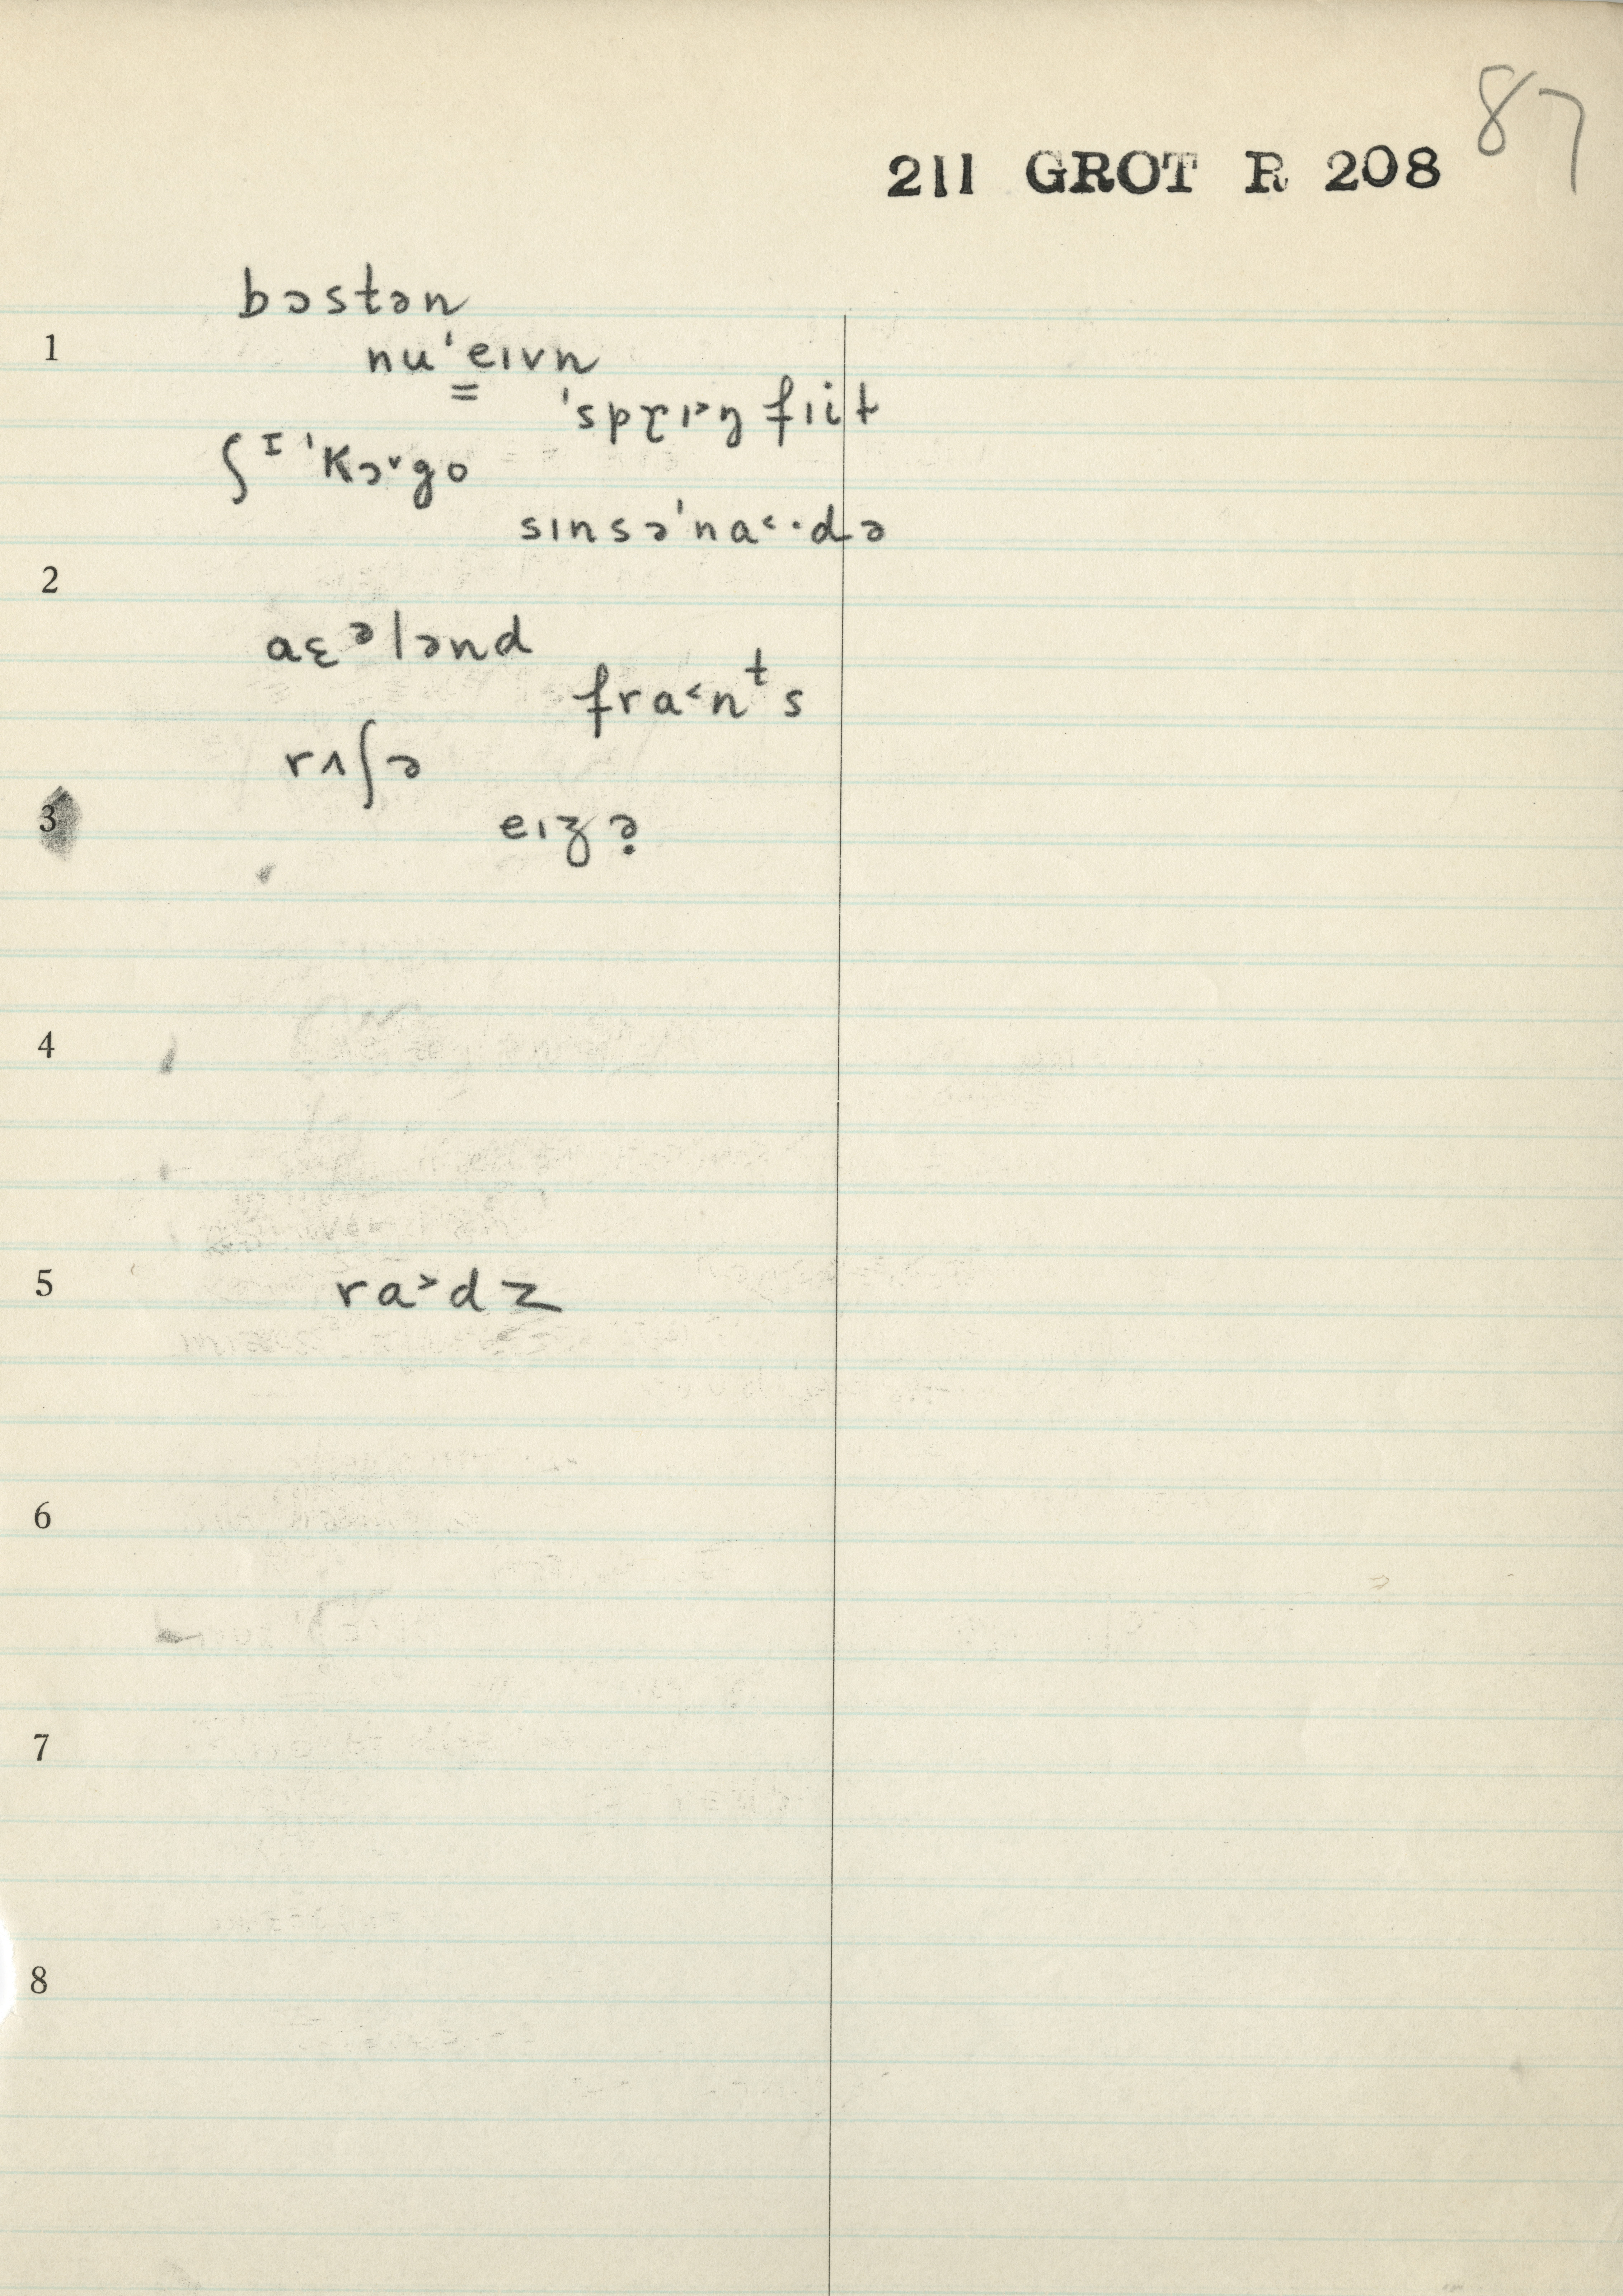 87
211 GROT R 208
bɔstən
1
nu'eɪvn
'sprɪ˃ŋ fɪit
ʃɪ'kɔ˅go
sɪnsə'na˂·də
2
aɛᵊlənd
fra˂nᵗs
rʌʃə
3
eɪʒə̣
4
5
ra˃dz
6
7
8